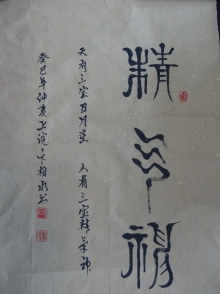 精气神
天有三宝日月星 人有三宝精气神
癸巳年仲夏上浣